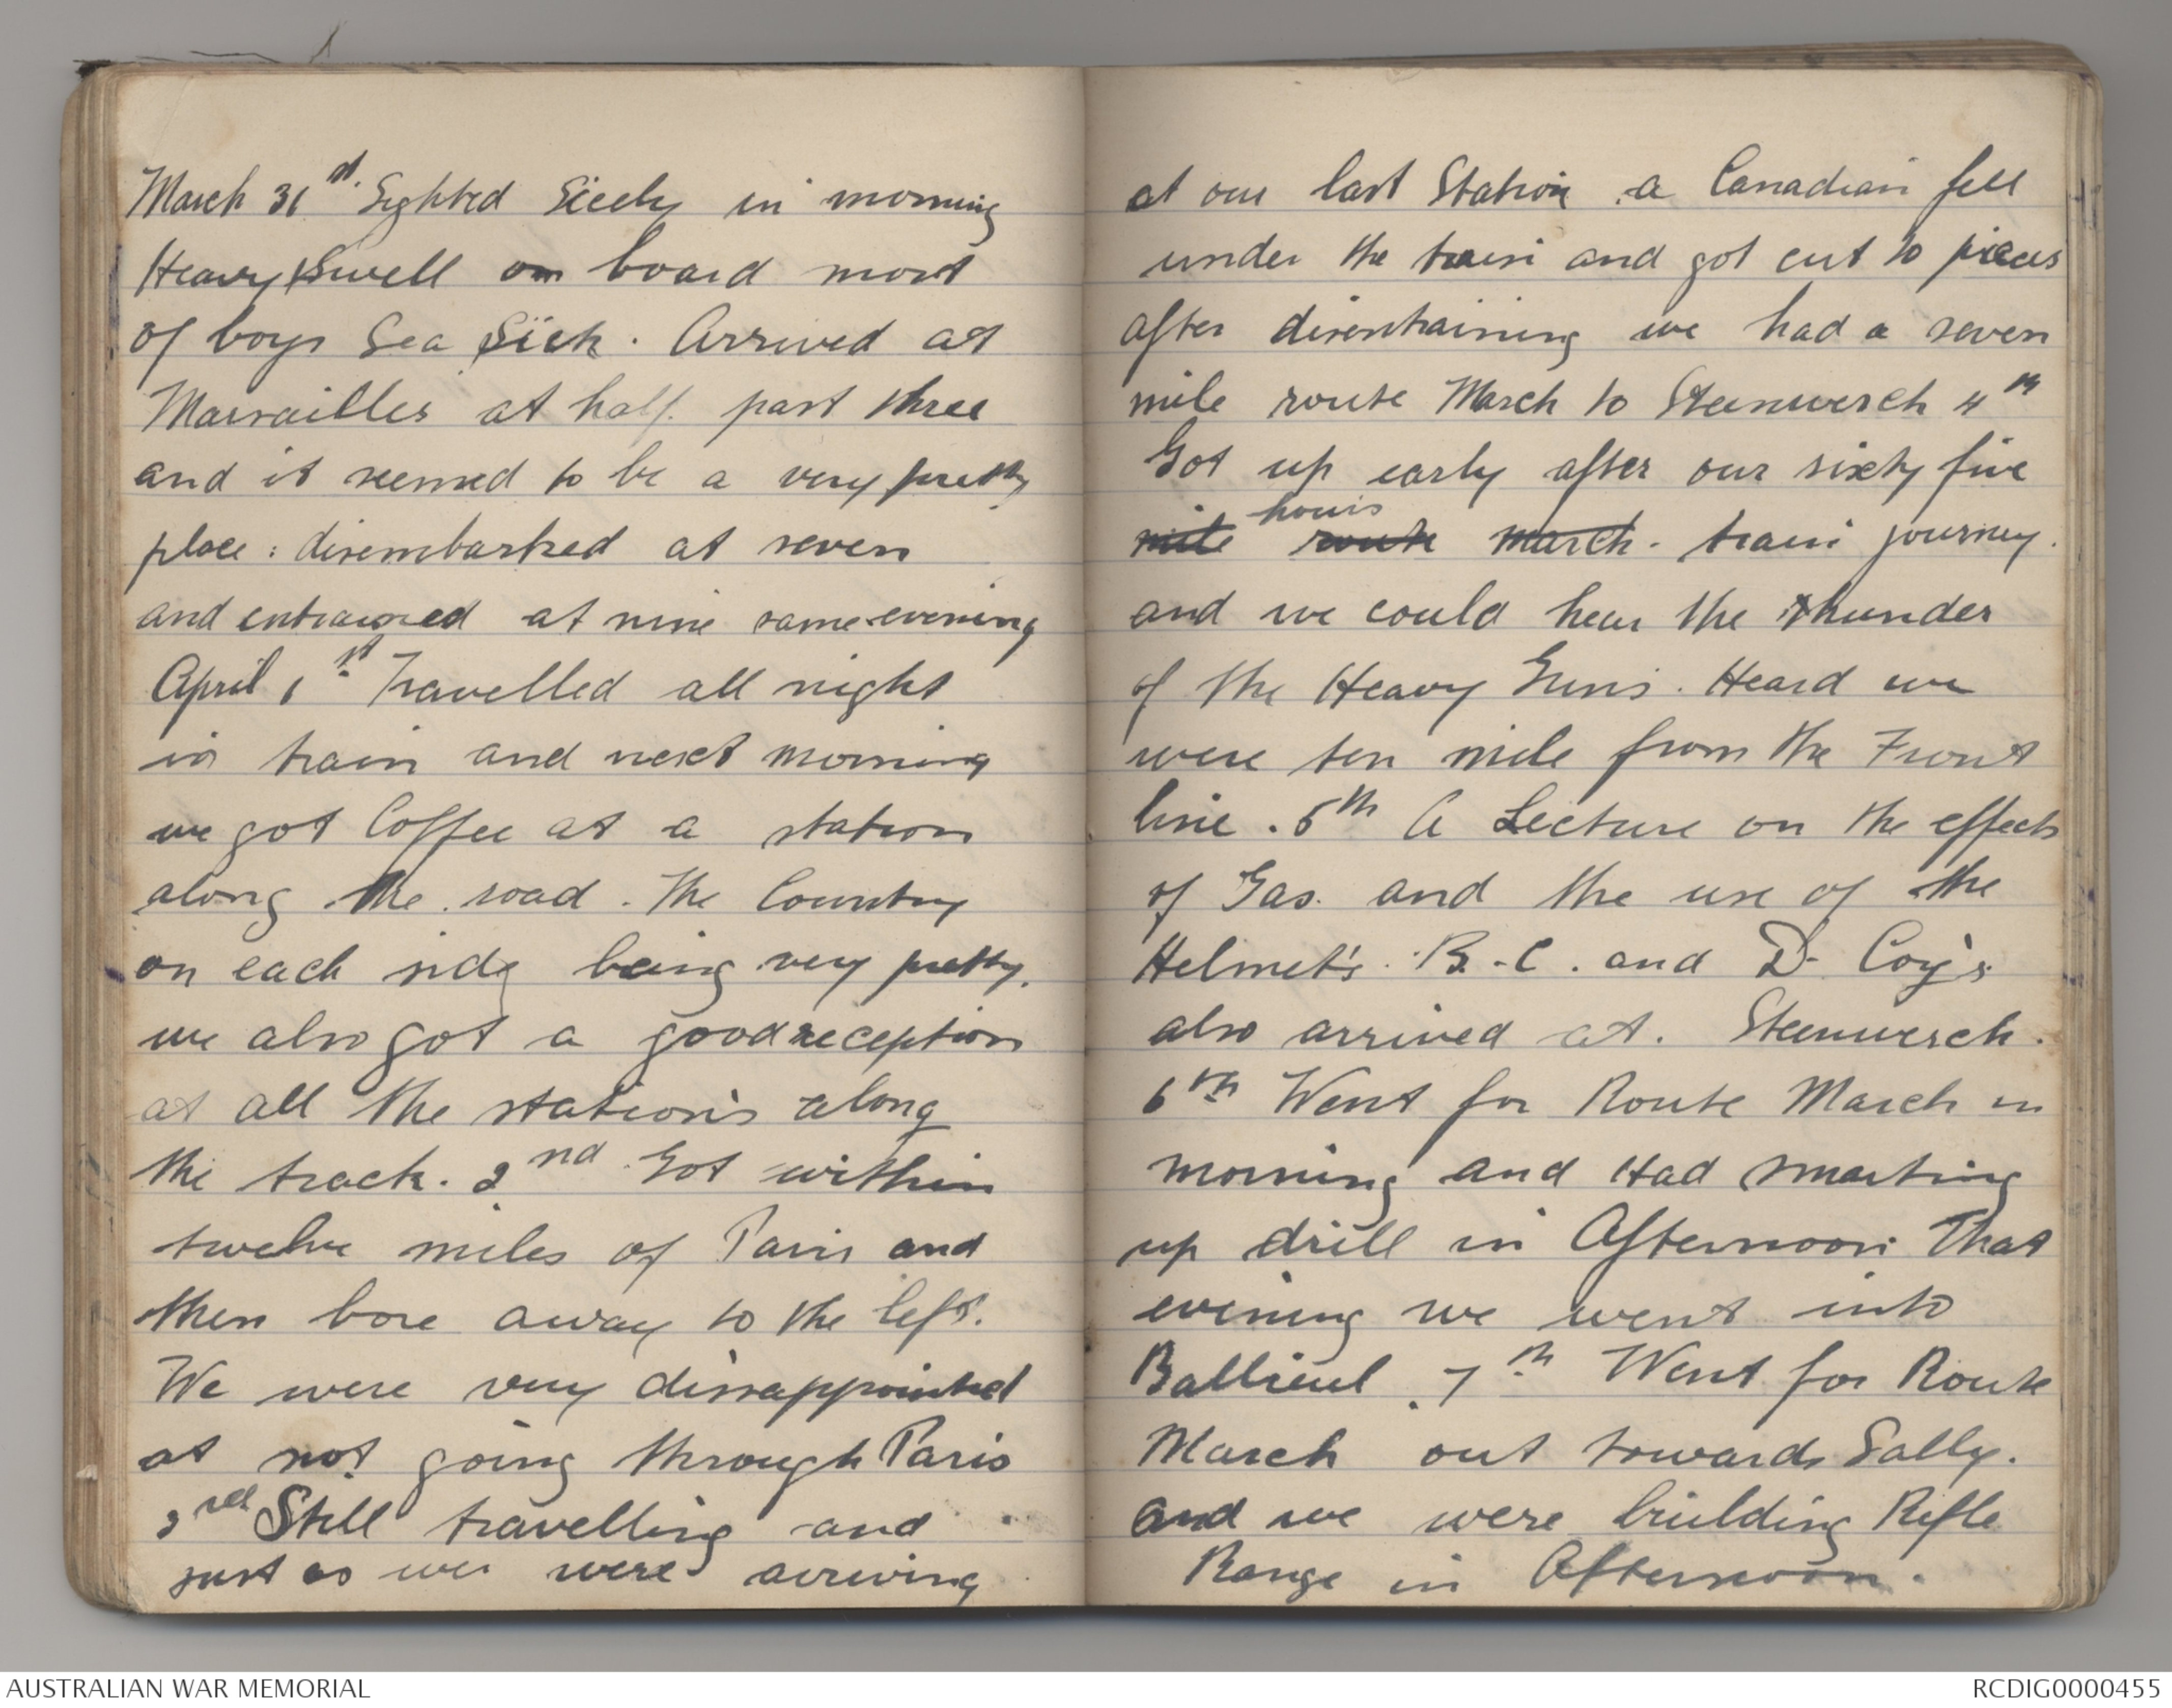 March 31st. Sighted Sicely in morning
Heavy Swell on board most
of boys Sea Sick. Arrived at
Marsailles at half. past three
and it seemed to be a very pretty
place: disembarked at seven
and entrained at nine same evening
April 1st. Travelled all night
in train and next morning
we got Coffee at a station
along the road. The Country
on each side being very pretty.
we also got a good reception
at all the station's along
the track. 2nd Got within
twelve miles of Paris and
then bore away to the left.
We were very dissappointed
at not going through Paris
3rd Still travelling and
just as we were arriving
at our last Station a Canadian fell
under the train and got cut to pieces
after disentraining we had a seven
mile route March to Steenwerch 4th
Got up early after our sixty five
hours
mile route march. train journey.
and we could hear the thunder
of the Heavy Guns. Heard we
were ten mile from the Front
line. 5th A Lecture on the effects
of Gas. and the use of the
Helmet's. B.-C. and D- Coy's
also arrived at. Steenwerch.
6th Went for Route March in
morning and Had smarting
up drill in Afternoon That
evening we went into
Ballieul. 7th Went for Route
March out towards Sally.
and we were building Rifle
Range in Afternoon.
AUSTRALIAN WAR MEMORIAL
RCDIG0000455